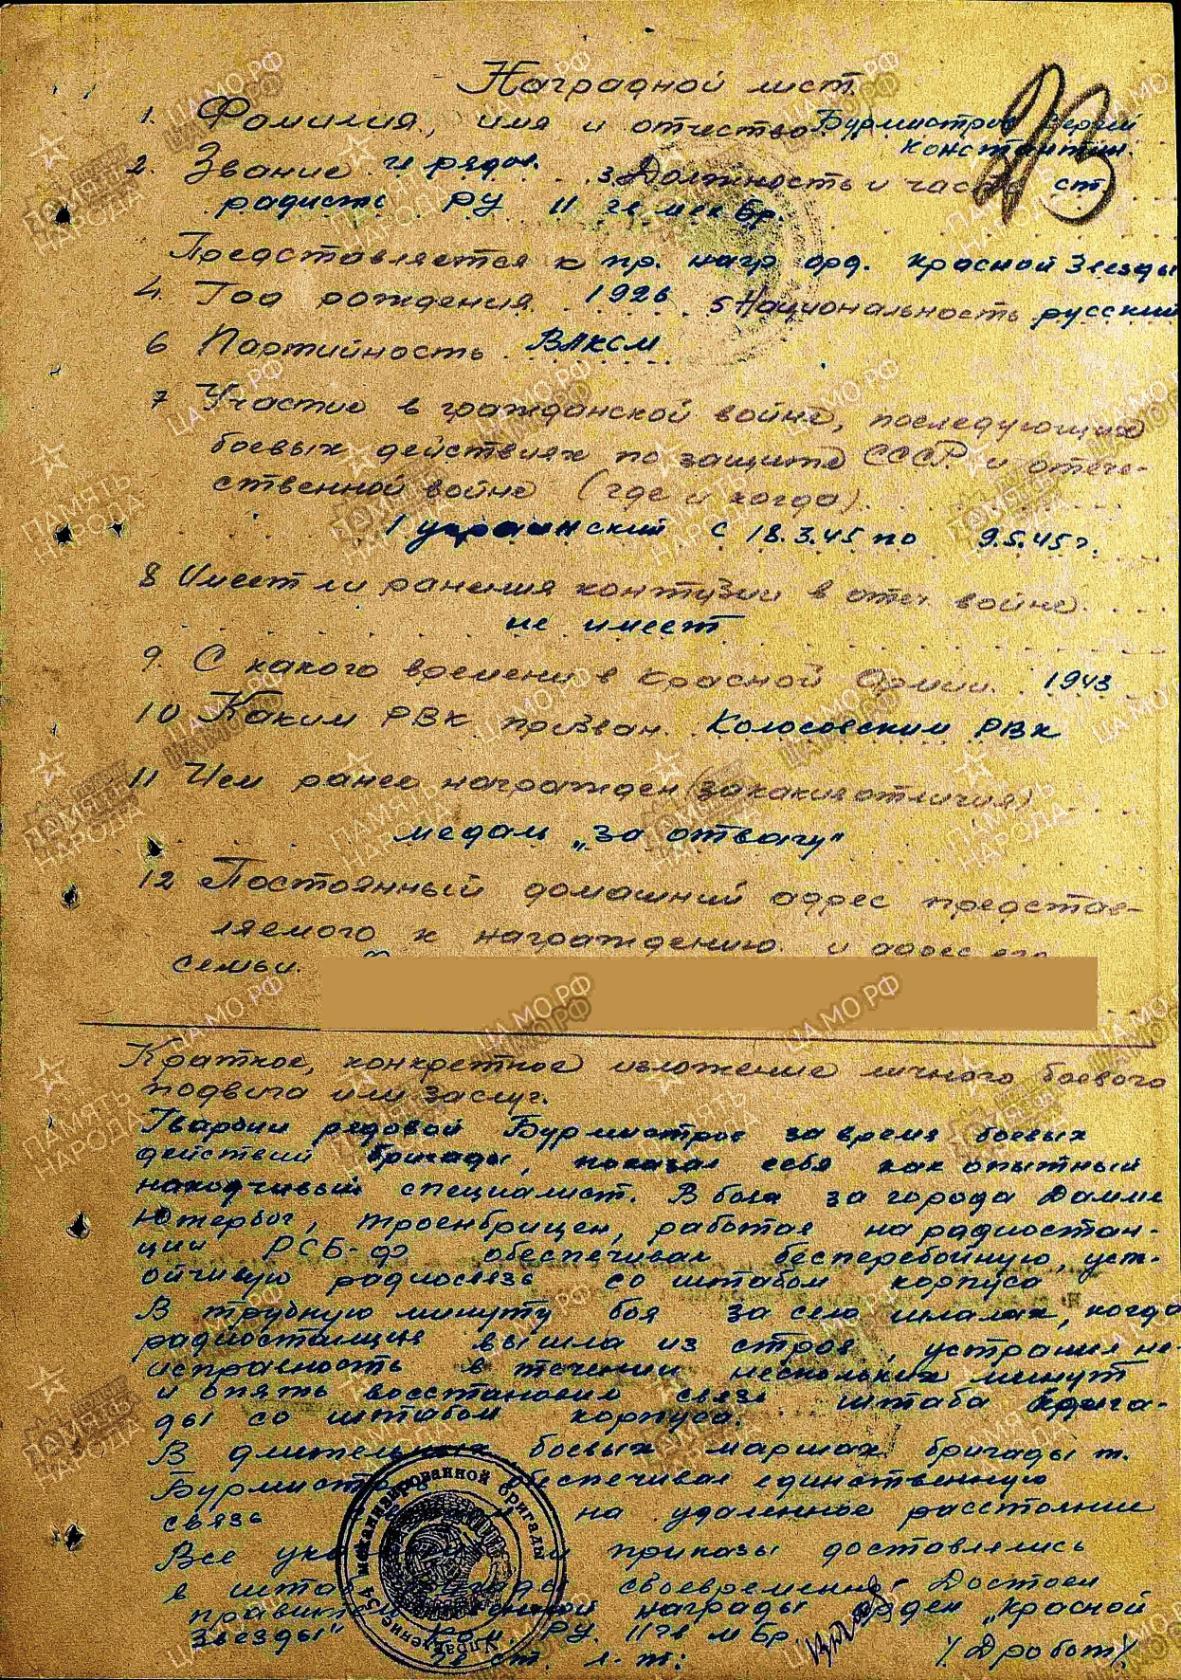 Наградной лист
1. Фамилия, имя и отчество Бурмистров Сергей
Константин.
2. Звание гв рядов. 3. Должность и часть ст
радист РУ 11 гв мех бр.
Представляется к пр. нагр орд. Красной Звезды
4. Год рождения 1926 5 Национальность русский
6 Партийность ВЛКСМ
7 Участие в гражданской войне, последующих
боевых действиях по защите СССР и отече-
ственной войне (где и когда)
1 украинский с 18.3.45 по 9.5.45 г.
8 Имеет ли ранения контузии в отеч. войне.
не имеет
9. С какого времени в Красной Армии. 1943
10 Каким РВК призван. Колосовским РВК
11 Чем ранее награжден (за какие отличия)
медаль „за отвагу"
12 Постоянный домашний адрес представ-
ляемого к награждению. и адрес его
семьи.
Краткое, конкретное изложение личного боевого
подвига или заслуг.
Гвардии рядовой Бурмистров за время боевых
действий бригады, показал себя как опытный
находчивый специалист. В боях за города Даме
Ютербог, Троенбрицен, работая на радиостан-
ции РСБ-Ф обеспечивал бесперебойную, уст-
ойчивую радиосвязь со штабом корпуса
В трудную минуту боя за село шлалах, когда
радиостанция вышла из строя, устранил не-
исправность в течении нескольких минут
и опять восстановил связь штаба брига-
ды со штабом корпуса.
В длительных боевых маршах бригады т.
Бурмистров обеспечивал единственную
связь на удаленное расстояние
Все ука и приказы доставлялись
в штаб бригады своевременно. Достоин
правит награды орден „Красной
Звезды" Ком. РУ. 11 гв м бр
гв ст. л-т: /Дробот/
Управление 54 механизированной бригады
ПАМЯТЬ НАРОДА
ЦАМО.РФ